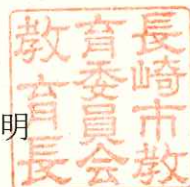 明
長崎市教
育委員会
教育長